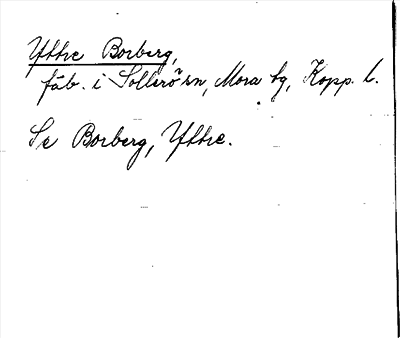 Yttre Borberg,
fäb. i Sollerö sn, Mora tg, Kopp. l.
Se Borberg, Yttre.